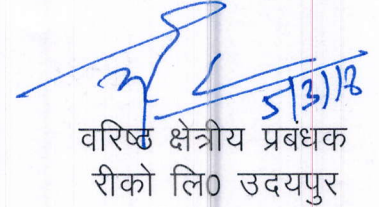 5/3/18
वरिष्ठ क्षेत्रीय प्रबंधक
रीको लि0 उदयपुर